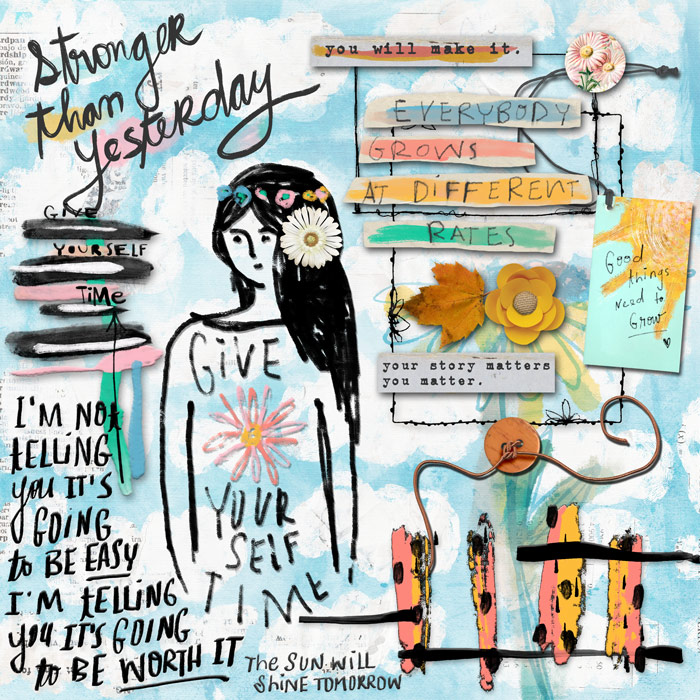 Stronger
than
yesterday
you will make it.
EVERYBODY
GROWS
AT DIFFERENT
RATES
GIVE
YOURSELF
TiMe
Good
things
Need to
Grow
your story matters
you matter.
GiVE
YOUR
SELF
TIME!
I'M NOt
tELLiNG
you IT'S
GOING
to BE EASY
I'M tELLING
you IT'S GOING
to BE WORTH IT
The SUN WILL
SHINE TOMORROW